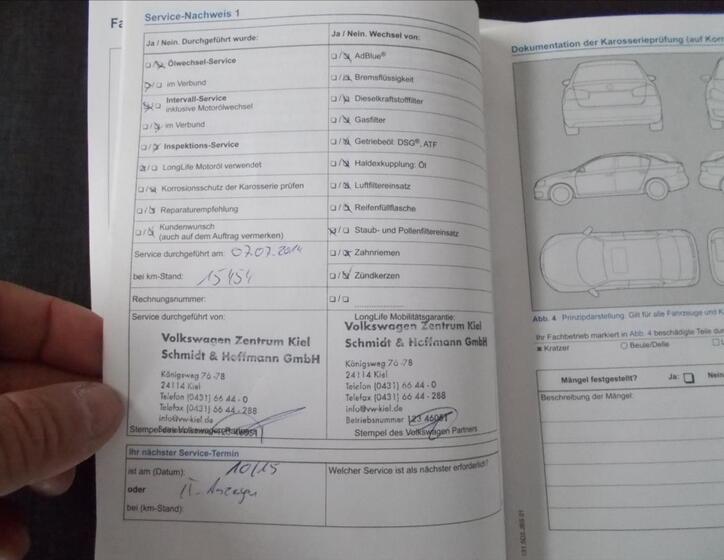 Fa
Service-Nachweis 1
Ja / Nein. Durchgeführt wurde:
Ölwechsel-Service
im Verbund
Intervall-Service
inklusive Motorölwechsel
im Verbund
Inspektions-Service
LongLife Motoröl verwendet
Korrosionsschutz der Karosserie prüfen
Reparaturempfehlung
Kundenwunsch
(auch auf dem Auftrag vermerken)
Service durchgeführt am: 07.07.2014
bei km-Stand: 15454
Rechnungsnummer:
Service durchgeführt von:
Volkswagen Zentrum Kiel
Schmidt & Hoffmann GmbH
Königsweg 76-78
24114 Kiel
Telefon (0431) 66 44 - 0
Telefax (0431) 66 44 - 288
info@vw-kiel.de
Stempel des Volkswagen Partners
Ja / Nein. Wechsel von:
AdBlue®
Bremsflüssigkeit
Dieselkraftstofffilter
Gasfilter
Getriebeöl: DSG®, ATF
Haldexkupplung: Öl
Luftfiltereinsatz
Reifenfüllflasche
Staub- und Pollenfiltereinsatz
Zahnriemen
Zündkerzen
LongLife Mobilitätsgarantie:
Volkswagen Zentrum Kiel
Schmidt & Hoffmann GmbH
Königsweg 76-78
24114 Kiel
Telefon (0431) 66 44 - 0
Telefax (0431) 66 44 - 288
info@vw-kiel.de
Betriebsnummer
Stempel des Volkswagen Partners
Ihr nächster Service-Termin
ist am (Datum): 10/15
oder
bei (km-Stand):
Welcher Service ist als nächster erforderlich?
Dokumentation der Karosserieprüfung (auf Korr
Abb. 4 Prinzipdarstellung. Gilt für alle Fahrzeuge und K
Ihr Fachbetrieb markiert in Abb. 4 beschädigte Teile du
Kratzer
Beule/Delle
Mängel festgestellt? Ja: Nein
Beschreibung der Mängel: